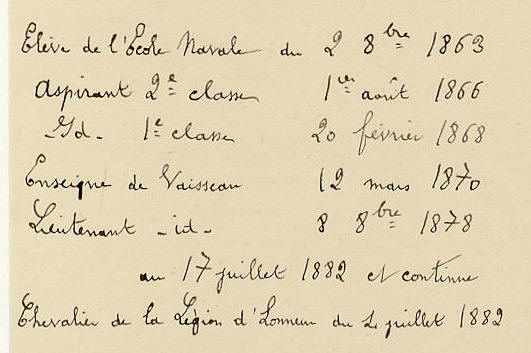 Elève de l'École Navale du 2 8bre 1863
Aspirant 2e classe 1er août 1866
- Id - 1e classe 20 février 1868
Enseigne de Vaisseau 12 mars 1870
Lieutenant - id - 8 8bre 1878
au 17 juillet 1882 et continue
Chevalier de la Légion d'Honneur du 4 juillet 1882